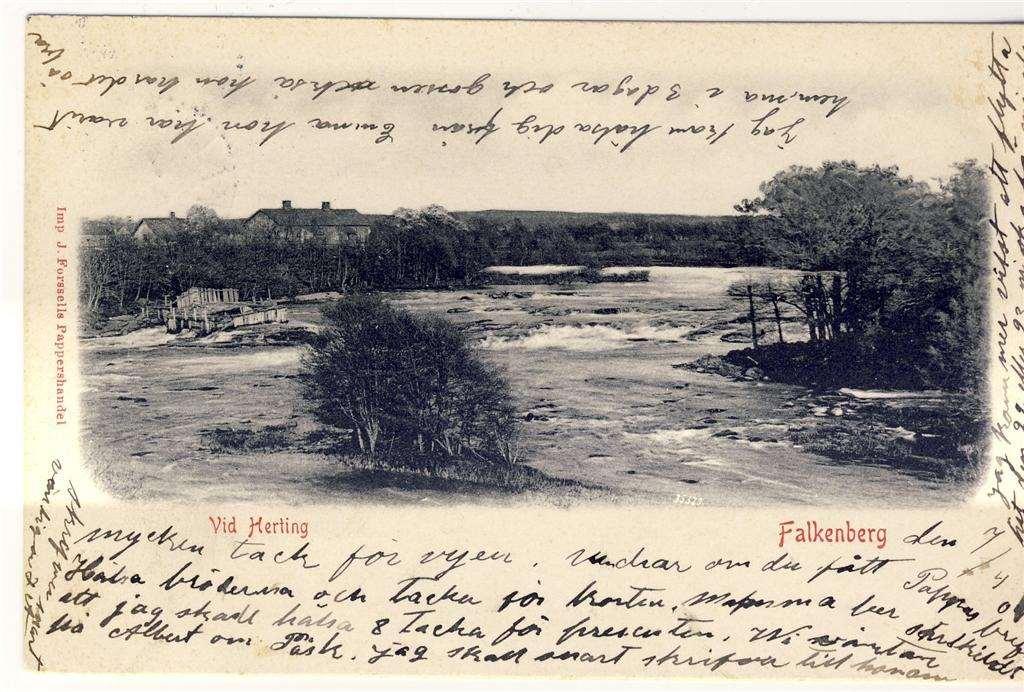 Jag kan hälsa dig från Emma hon har varit
hemma i 3 dagar och gossen också hon har det så bra
Imp J. Forssells Pappershandel
Vid Herting
Falkenberg den 7/4 0
mycken tack för vyen. undrar om du fått Pappas bref
Hälsa bröderna och tacka för korten. Mamma ber särskildt
att jag skall hälsa & tacka för presenten. Wi väntar
på Albert om Påsk. jag skall snart skrifva till honom
skrif snart
vänligen
Jag kommer visst att flytta